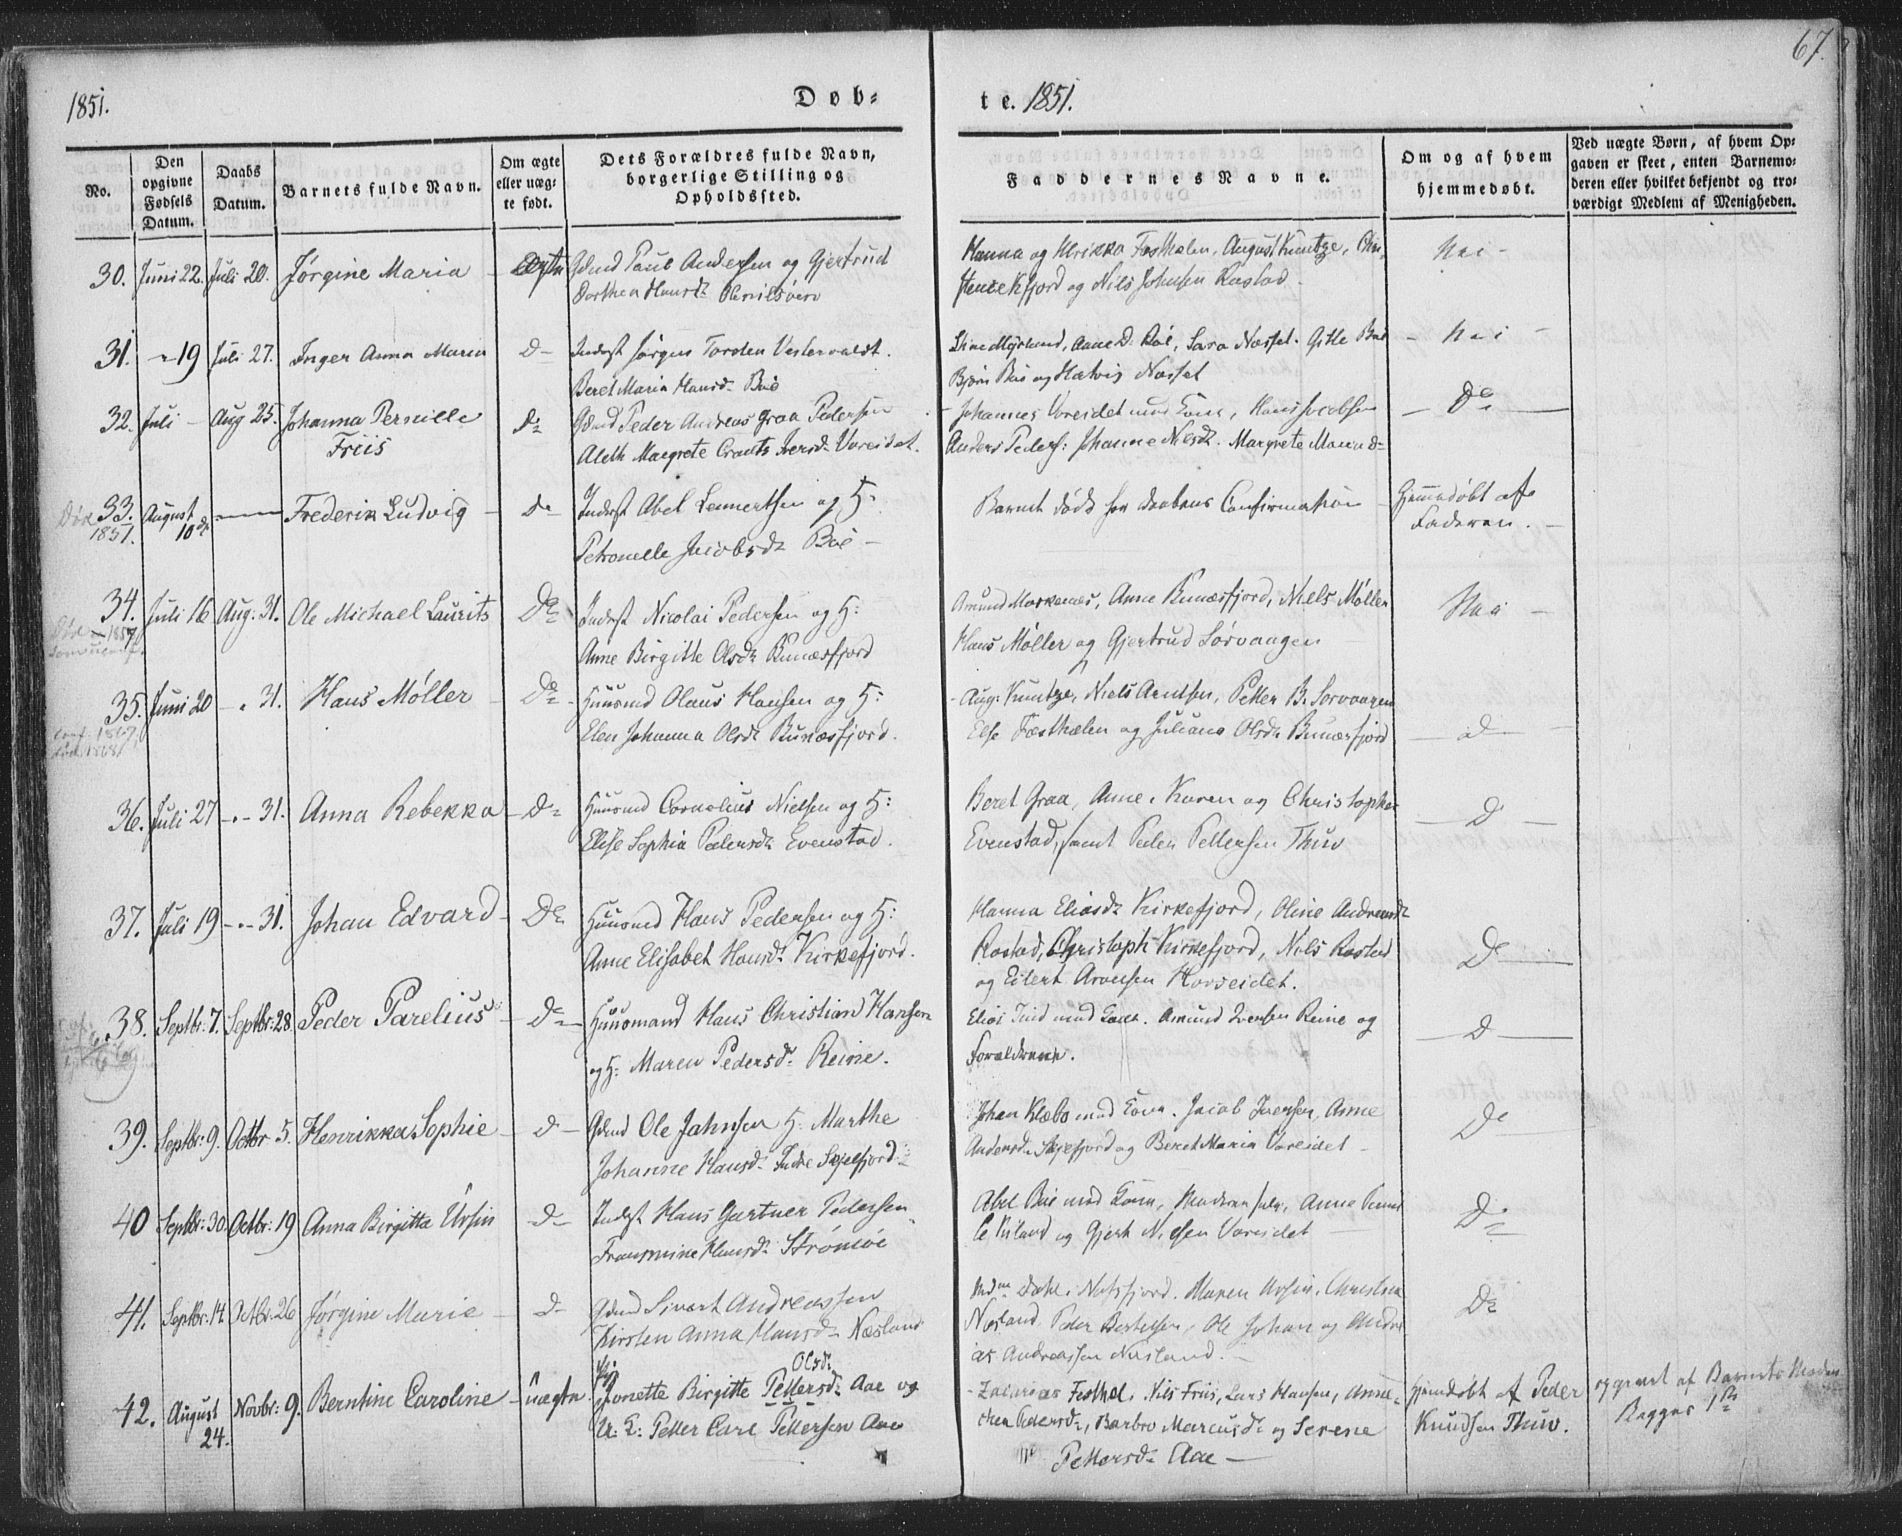 67.
1851.
Døb-
te. 1851.
No.
Den opgivne Fødsels Datum.
Daabs Datum.
Barnets fulde Navn.
Om ægte eller uæg- te født.
Dets Forældres fulde Navn, borgerlige Stilling og Opholdssted.
Faddernes Navne.
Om og af hvem hjemmedøbt.
Ved uægte Børn, af hvem Op- gaven er skeet, enten Barnemo- deren eller hvilket bekjendt og tro- værdigt Medlem af Menigheden.
30. Juni 22. Juli 20. Jørgine Maria Ægte Gdmd Paul Andersen og Gjertrud
Dorthea Hansd.
Hanna og Ulrikka Festhælen, August Kuntze,
Kjord og Nils Johnsen Rastad.
Nei -
31. - 19 Juli 27. Inger Anna Maria D- Inderst Jørgen Torsten Vestervaldt.
Beret Maria Hansd. Bøe
Myrland, Aane D. Bøe, Sara Næsset. Gitle Bøe
Bjørn Bøe og Hætvig Næsset
- Nei -
32. Juli - Aug 25. Johanna Pernille
Friis
D- Gdmd Peder Andreas Graa Pedersen
Aleth Margrete Crantz Iversd. Voreidet.
- Johannes Voreidet med Kone, Hans Jacobsen
Anders Peders: Johanne Nielsd. Margrete
- Do -
33. August
10de
Død
1851.
Frederik Ludvig - D- Inderst Abel Lennertsen og H:
Petronelle Jacobsd. Bøe -
Barnet døde før daabens Confirmation
Hjemmedøbt af
Faderen. -
34. Juli 16 Aug: 31. Ole Michael Laurits D- Inderst Nicolai Pedersen og H:
Død 1857
Anne Birgitte Olsd. Bunæsfjord
Amund Morkenæs, Anne Bunæsfjord, Niels Møller
Hans Møller og Gjertrud Sørvaagen
Nei -
35. Juni 20 - " 31. Hans Møller - D- Huusmd Olaus Hansen og H:
Conf. 1867
1868
Elen Johanna Olsd. Bunæsfjord.
- Aug: Kuntze, Niels Arntsen, Petter B. Sørvaagen
Else Fæsthælen og Juliana Olsd. Bunæsfjord
- d -
36. Juli 27 - " - 31. Anna Rebekka - D- Huusmd Cornelius Nielsen og H:
Elise Sophia Pedersd. Evenstad.
Beret Graa, Anne, Karen og Christopher
Evenstad, samt Peder Pettersen Thuv
- D -
37. Juli 19 - " - 31. Johan Edvard - D- Huusmd Hans Pedersen og H:
Anne Elisabet Hansd. Kirkefjord.
Hanna Eliasd. Kirkefjord, Oline Andreasd.
Rostad, Christoph Kirkefjord, Nils Rostad
og Eilert Arensen Horseidet.
D-
38. Septbr: 7. Septbr: 28. Peder Parelius - D- Huusmand Hans Christian Hansen
og H: Maren Pedersd. Reine.
Elias Juul med Kone. Amund Iversen Reine og
Forældrene.
- D -
39. Septbr: 9. Octbr 5. Henrikka Sophie - d - Gdmd Ole Jahnsen H. Marthe
Johanne Hansd. Indre Skjelfjord.
Johan Klæbo med Kone. Jacob Iversen, Anne
Andersd. Skjelfjord og Beret Maria Voreidet -
De
40 Septbr: 30. Octbr: 19 Anna Birgitta Ursin - d- Inderst Hans Gartner Pedersen
Fransmine Hansd. Strømøe
Abel Bøe med Kone, Madren selv, Anne
og Gjert Nielsen Voreidet -
D-
41. Septbr: 14. Octbr: 26 Jørgine Marie - d- Gdmd Sivert Andreassen
Kirsten Anna Hansd. Næsland
Dahl, Nufsfjord. Maren Ursin, Christina
Næsland, Peder Bertelsen, Ole Johan og Andre
as Andreassen Næsland. -
D-
42. August
24.
Novbr: 9. Berntine Caroline - uægte Pg:
Jonette Birgitte Pettersd. Olsd. Aae og
U: K: Petter Carl Pettersen Aae
- Zacarias Festhel. Nils Friis, Lars Hansen, Anne-
chen Pedersd., Barbro Marcusd. og Serene
Pettersd. Aae -
Hjemdøbt af Peder
Knudsen Thuv.
opgivet af Barnets Moder
Begges 1ste